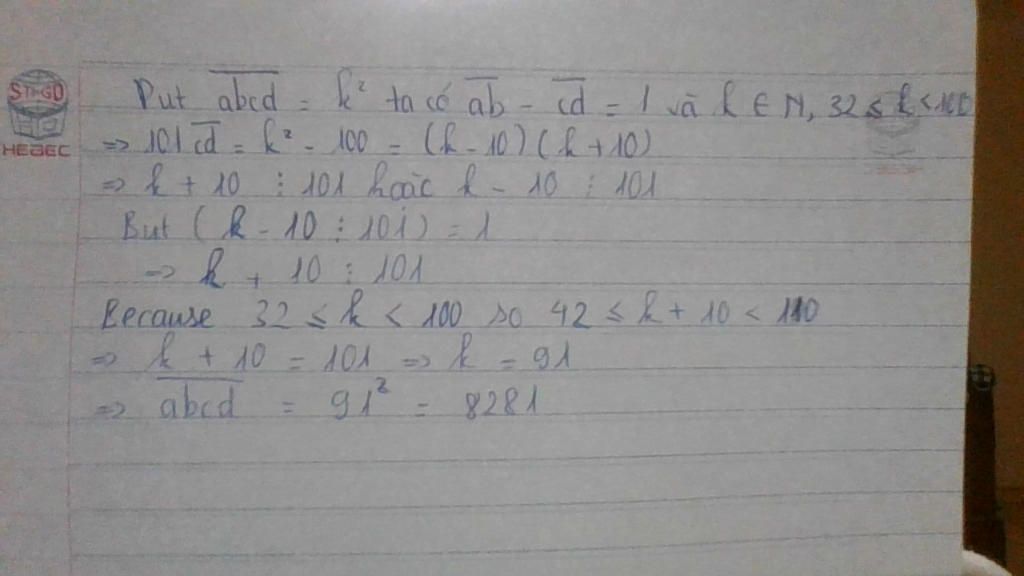 STAGO
HEBEC
Put abcd = k² ta có ab - cd = 1 và k ∈ N, 32 ≤ k < 100
=> 101 cd = k² - 100 = (k - 10)(k + 10)
=> k + 10 ⋮ 101 hoặc k - 10 ⋮ 101
But (k - 10 ⋮ 101) = 1
=> k + 10 ⋮ 101
Because 32 ≤ k < 100 so 42 ≤ k + 10 < 110
=> k + 10 = 101 => k = 91
=> abcd = 91² = 8281